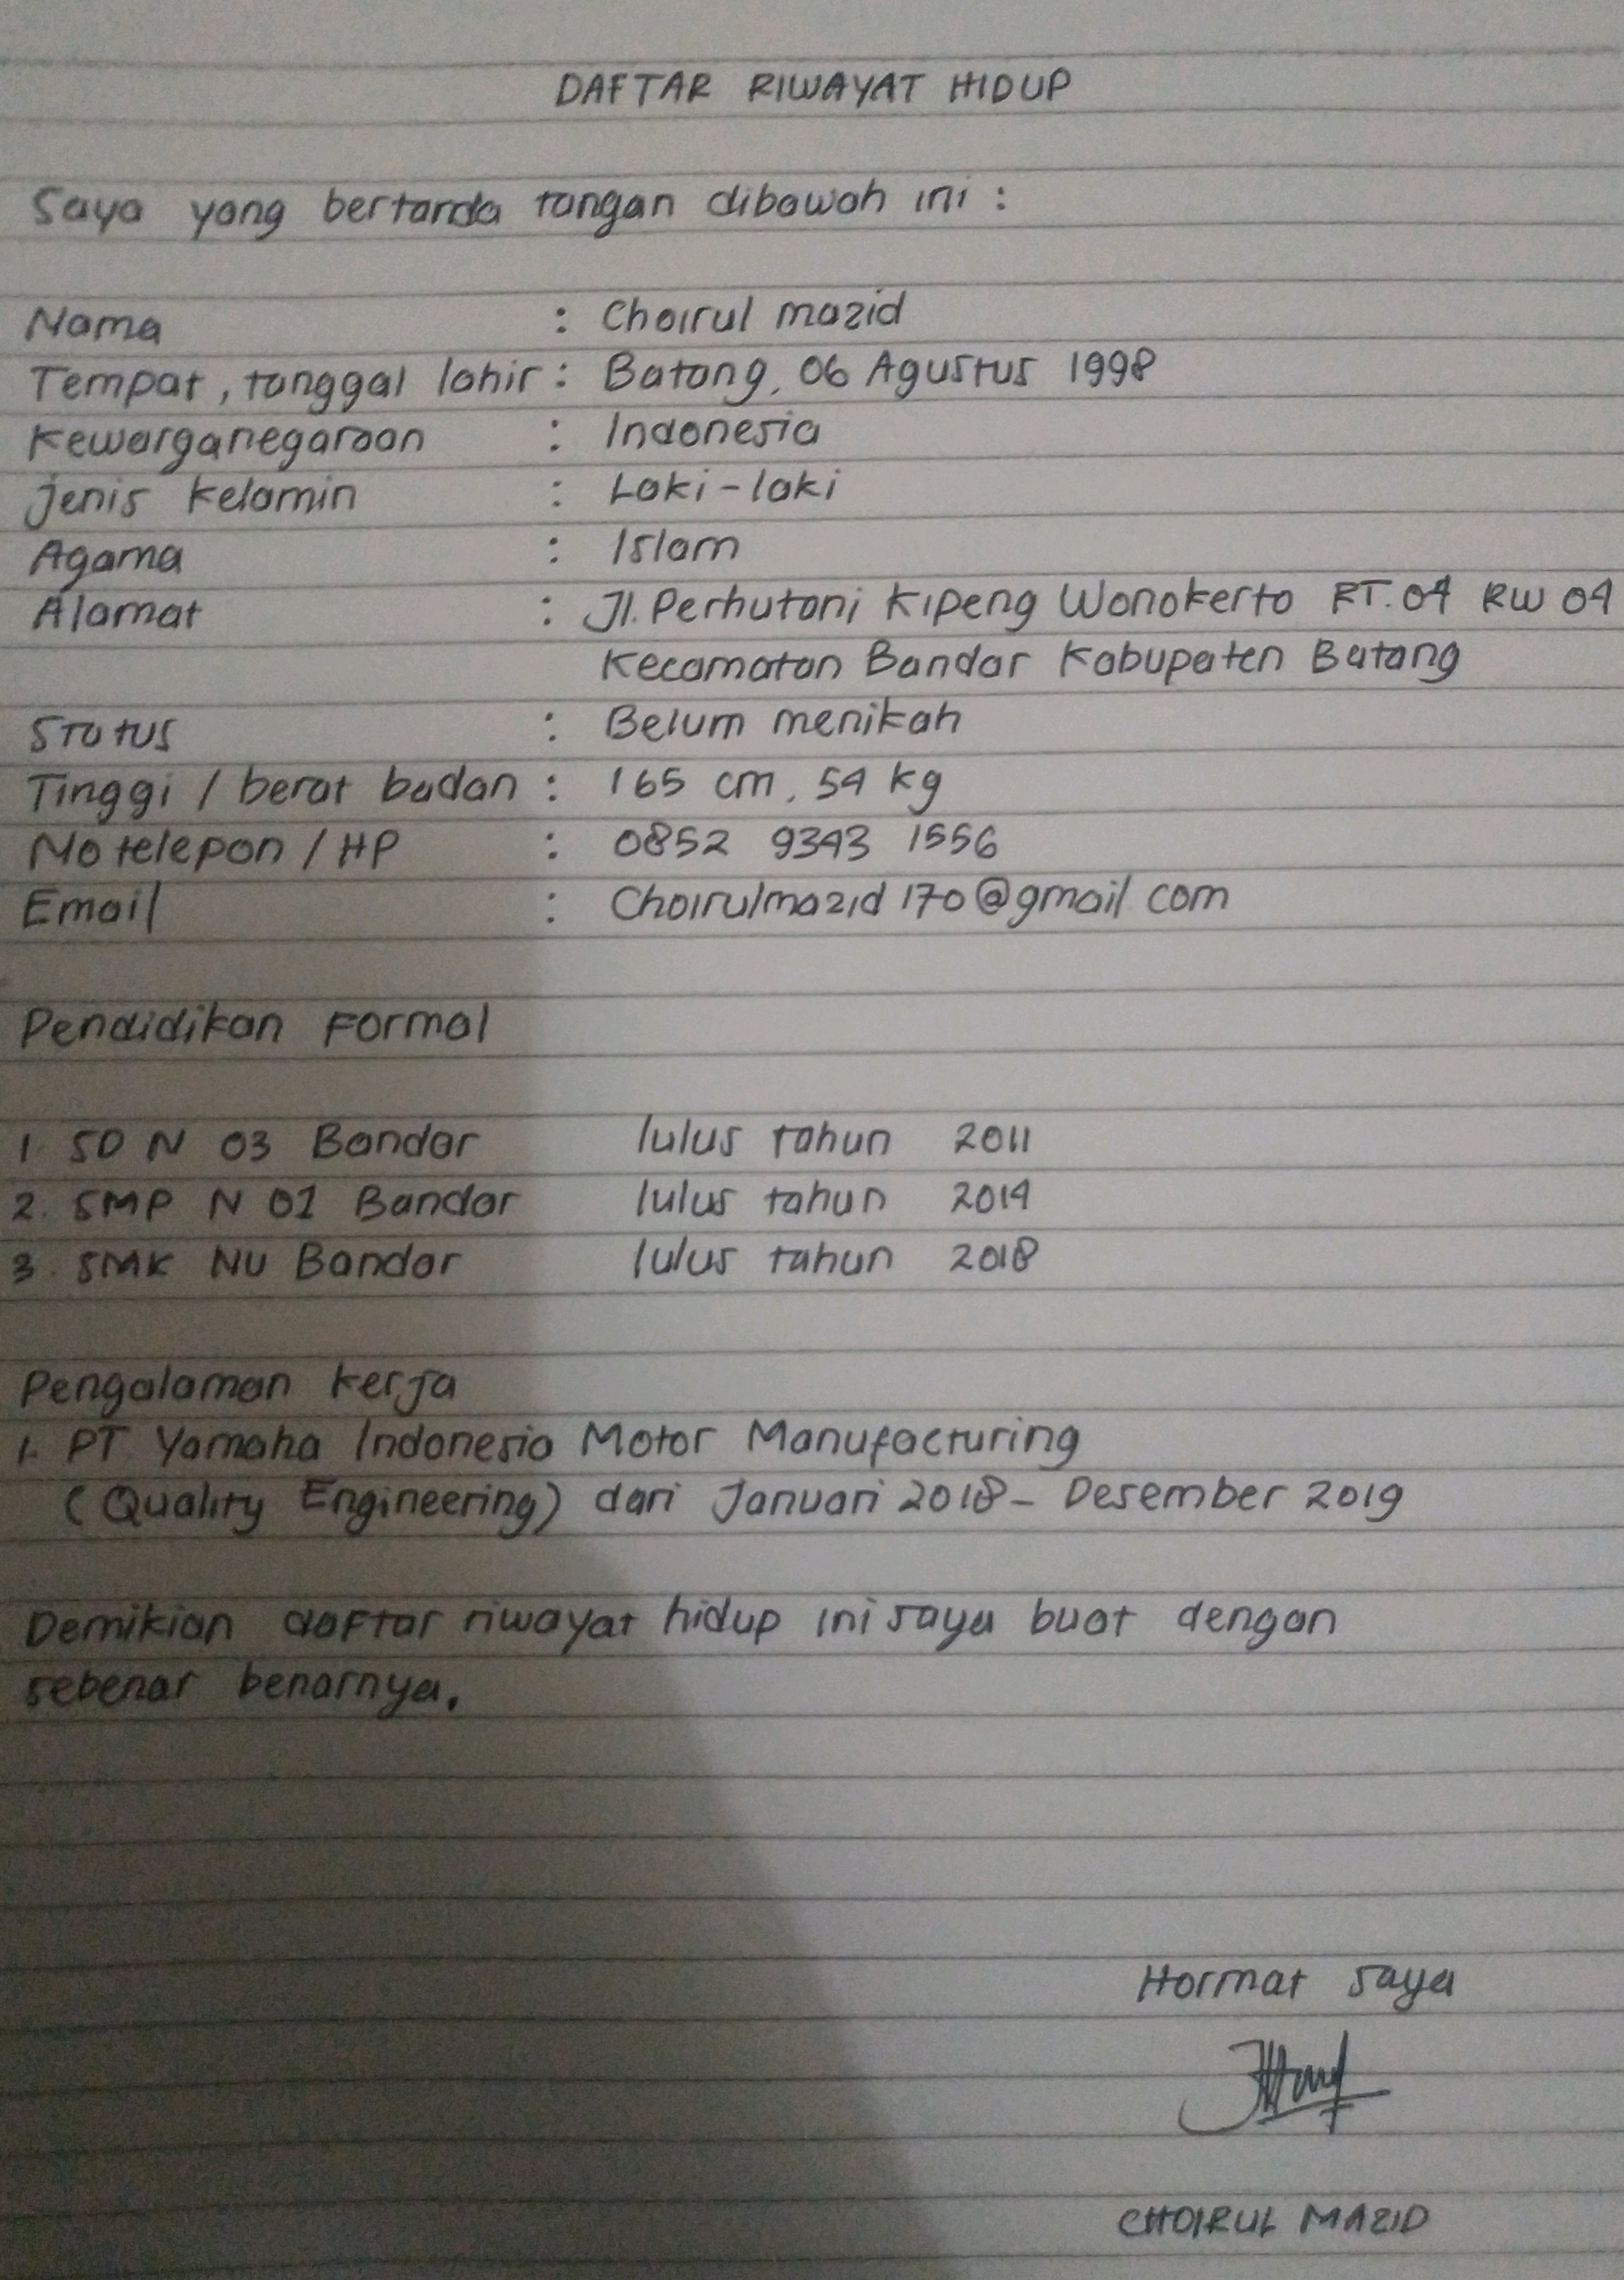 DAFTAR RIWAYAT HIDUP
Saya yang bertanda tangan dibawah ini :
Nama : Choirul mazid
Tempat, tanggal lahir : Batang, 06 Agustus 1998
Kewarganegaraan : Indonesia
jenis kelamin : Laki-laki
Agama : Islam
Alamat : Jl. Perhutani Kipeng Wonokerto RT.04 RW 04
Kecamatan Bandar Kabupaten Batang
Status : Belum menikah
Tinggi / berat badan : 165 cm, 54 kg
No telepon / HP : 0852 9343 1556
Email : Choirulmazid170@gmail.com
Pendidikan Formal
1. SD N 03 Bandar lulus tahun 2011
2. SMP N 01 Bandar lulus tahun 2014
3. SMK NU Bandar lulus tahun 2018
Pengalaman kerja
1. PT Yamaha Indonesia Motor Manufacturing
(Quality Engineering) dari Januari 2018 - Desember 2019
Demikian daftar riwayat hidup ini saya buat dengan
sebenar benarnya.
Hormat saya
CHOIRUL MAZID